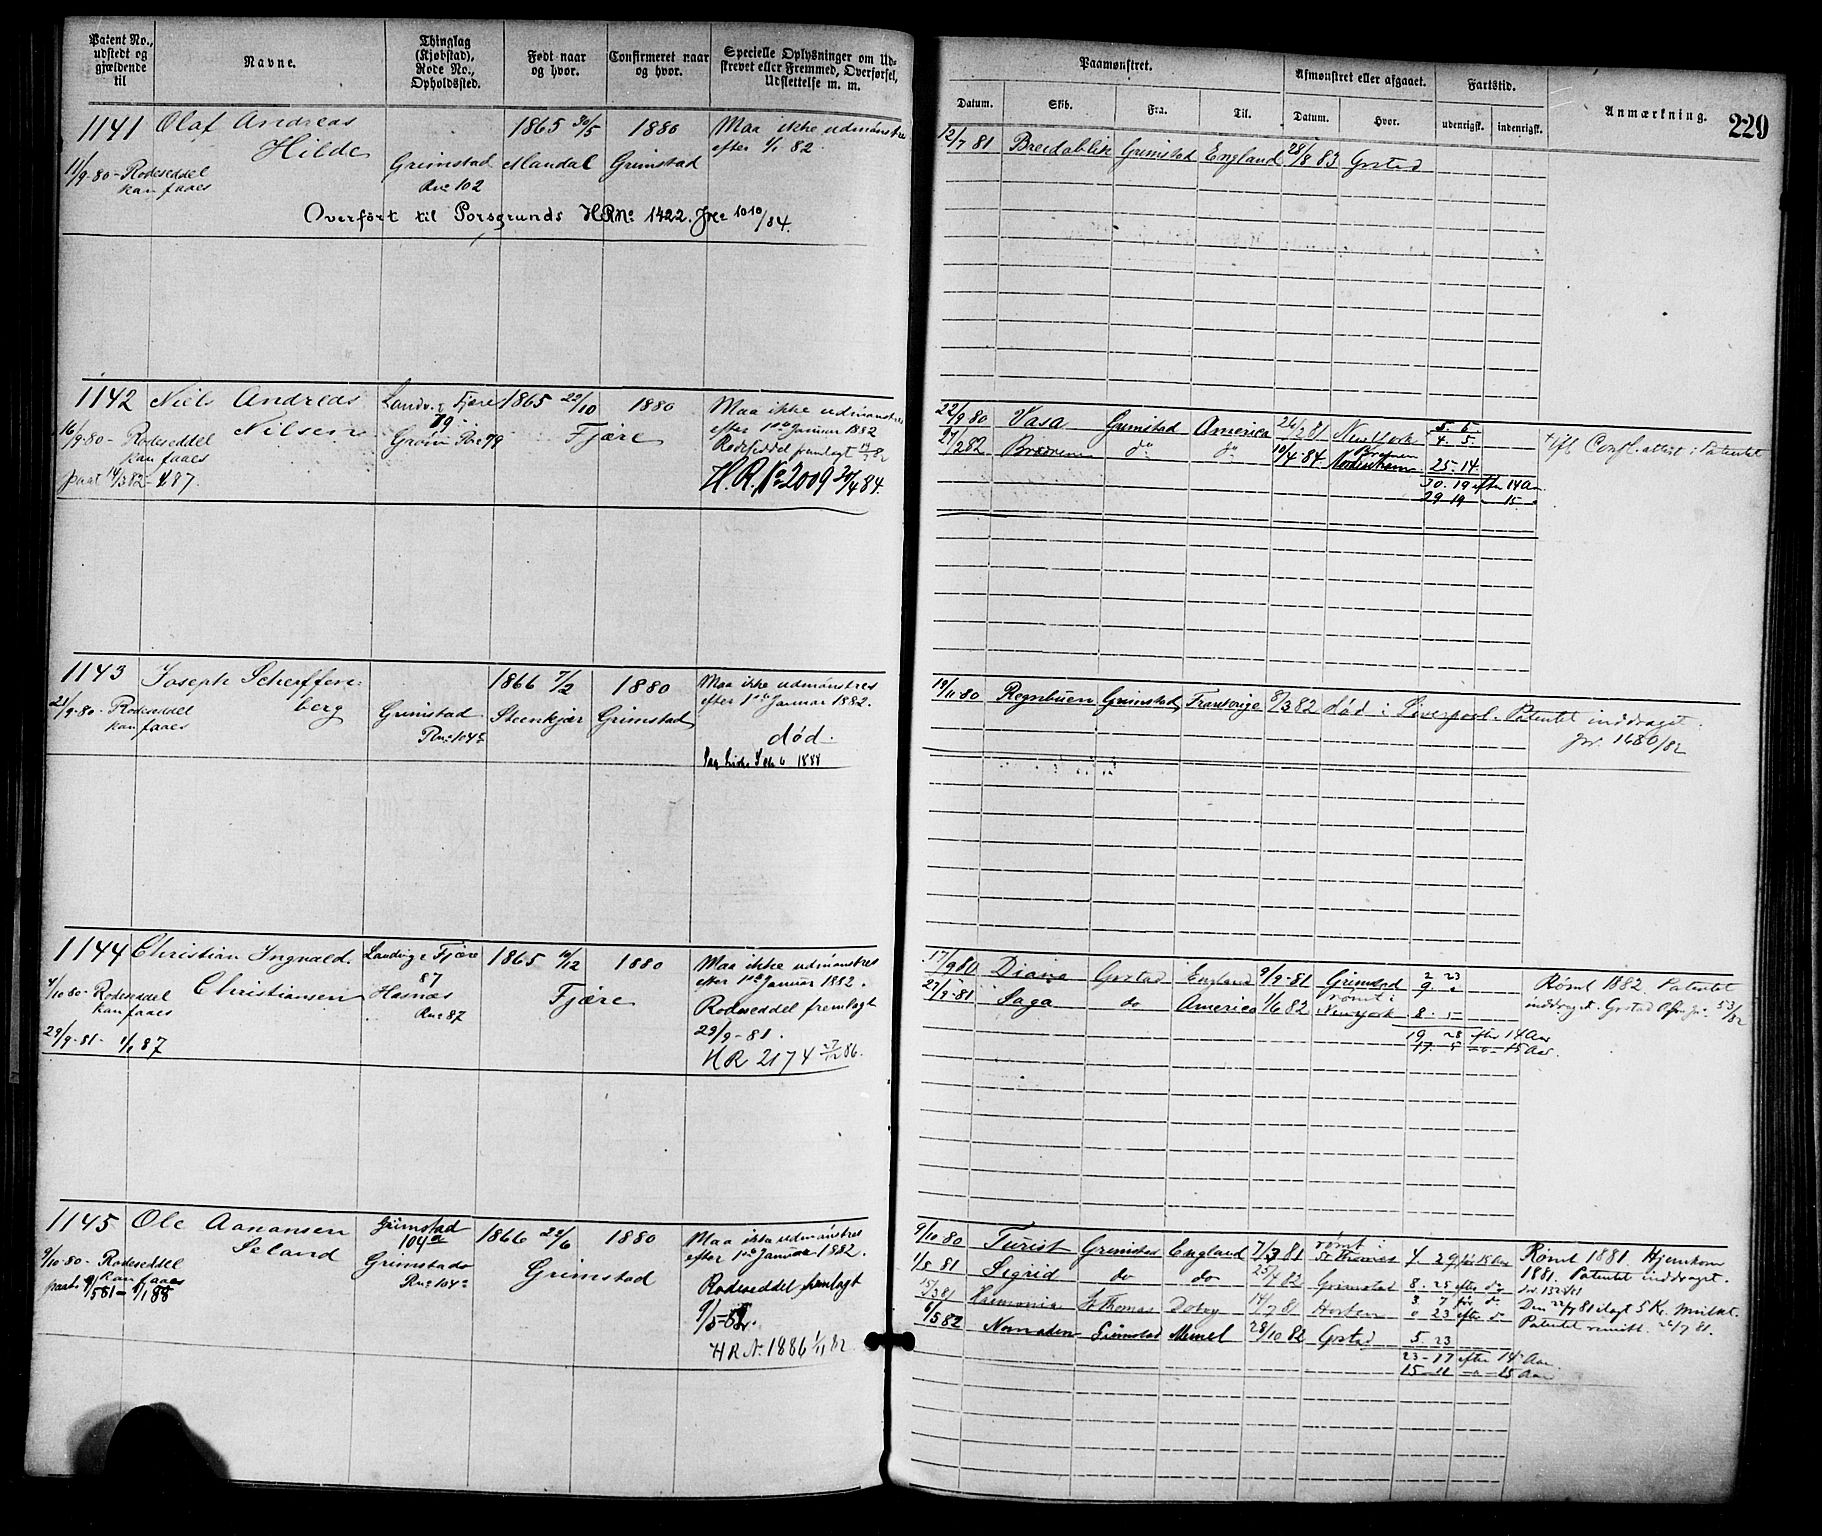 Patent No., udstedt og gjældende til
Navne.
Thinglag (Kjøbstad), Rode No., Opholdssted.
Født naar og hvor.
Confirmeret naar og hvor.
Specielle Oplysninger om Udskrevet eller Fremmed, Overførsel, Udslettelse m. m.
Paamønstret.
Afmønstret eller afgaaet.
Fartstid.
Anmærkning.
229
Datum.
Skib.
Fra.
Til.
Datum.
Hvor.
udenrigsk.
indenrigsk.
1141 Olaf Andreas 1865 30/5 1880 Maa ikke udmønstres
Hilde efter 1/1 82.
11/9-80- Rodeseddel Grimstad Mandal Grimstad
kan faaes Rn: 102
Overført til Porsgrunds HRNo 1422. Jnr 1010/84.
12/7 81 Breidablik Grimstad England 28/8 83 Grstad
1142 Niels Andreas Landv. & Fjære 1865 22/10 1880 Maa ikke udmønstres
Nilsen 79 efter 1ste Januar 1882
16/9-80- Rodeseddel Fjære Rodeseddel fremlagt 14/3 82
kan faaes
paat 14/3 82- 1/1 87. H.R. No 2009 30/4 84.
22/9 80 Vasa Grimstad America 26/2 81 New York 5. 6
4. 5.
27/2 82 Brødrene do do 19/4 84 25-14
30. 19 efter 14 Aar
29 19 " 15 "
Confl. attest i Patentet
1143 Joseph Scheffen 1866 7/2 1880 Maa ikke udmønstres
berg efter 1ste Januar 1882.
21/9-80- Rodeseddel Grimstad Steenkjær Grimstad
kan faaes Rn: 104c
død.
19/11 80 Regnbuen Grimstad Frankrige 8/3 82 død i Liverpool. Patentet inddraget.
jnr. 1680/82
1144 Christian Ingvald. Landvig & Fjære 1865 10/12 1880 Maa ikke udmønstres
87 efter 1ste Januar 1882.
Christiansen Hasnæs Fjære
4/10 80- Rodeseddel Rn: 87 Rodeseddel fremlagt
kan faaes
29/9-81- 1/1 87 29/9-81.
HR 2174 27/12 86.
17/9 80 Diana Grstad England 9/9-81 Grimstad 2 23
9 "
27/9-81 Saga do America 1/6 82 rømt i New York 8. 5
19 28 efter 14 Aar
17. 5 -o- 15 Aar.
Rømt 1882 Patentet
inddraget. Grstad 53/82
1145 Ole Aanansen Grimstad 1866 22/6 1880 Maa ikke udmønstres
104a efter 1ste Januar 1882.
Seland Grimstad Grimstad
9/10-80- Rodeseddel Rn: 104a Rodeseddel fremlagt
kan faaes
paat 9/5 81- 1/1 88 9/5-81.
HR N. 1886 1/11 82
9/10 80 Turist Grimstad England 7/3 81 rømt i St Thomas 4. 29 før 15 Aar
11/5 81 Sigrid do do 25/7 82 Grimstad 8. 25 efter do
15/3 81 Harmonia St Thomas 14/7 81 Horten 3 7 før do
0 23 efter do
6/5 82 Nomaden Grimstad Memel 28/10 82 Grstad 5 23
23-17 efter 14 Aar.
15-11 -o- 15 Aar
Rømt 1881. Hjemkom
1881. Patentet inddraget.
Jnr. 152/81
Den 22/7 81 ilagt 5 Kr. Mulkt.